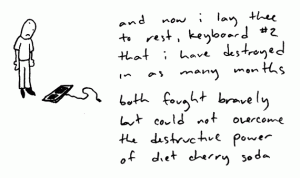 and now i lay thee
to rest, keyboard #2
that i have destroyed
in as many months
both fought bravely
but could not overcome
the destructive power
of diet cherry soda